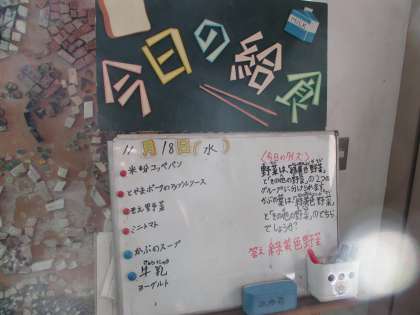 今日の給食
MILK
11月18日(水)
米粉コッペパン
とやまポークのアップルソース
ミニトマト
かぶのスープ
牛乳
ヨーグルト
〈今日のクイズ〉
野菜は、「緑黄色野菜」
と「その他の野菜」の2つの
グループに分けられます。
かぶの葉は、「緑黄色野菜」
と「その他の野菜」のどちら
でしょうか?
答え 緑黄色野菜